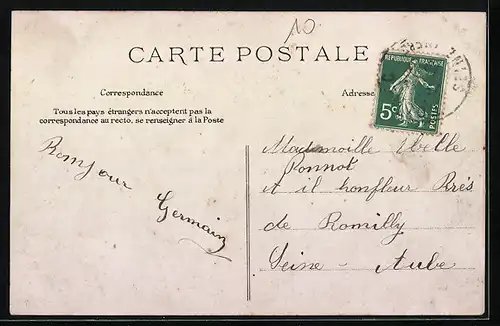 10
CARTE POSTALE
Correspondance
Adresse
Tous les pays étrangers n'acceptent pas la
correspondance au recto, se renseigner à la Poste
REPUBLIQUE FRANÇAISE
5c
POSTES
Bonjour
Germain
Mademoiselle
Ponnot
a il honfleur Près
de Romilly
Seine - Aube